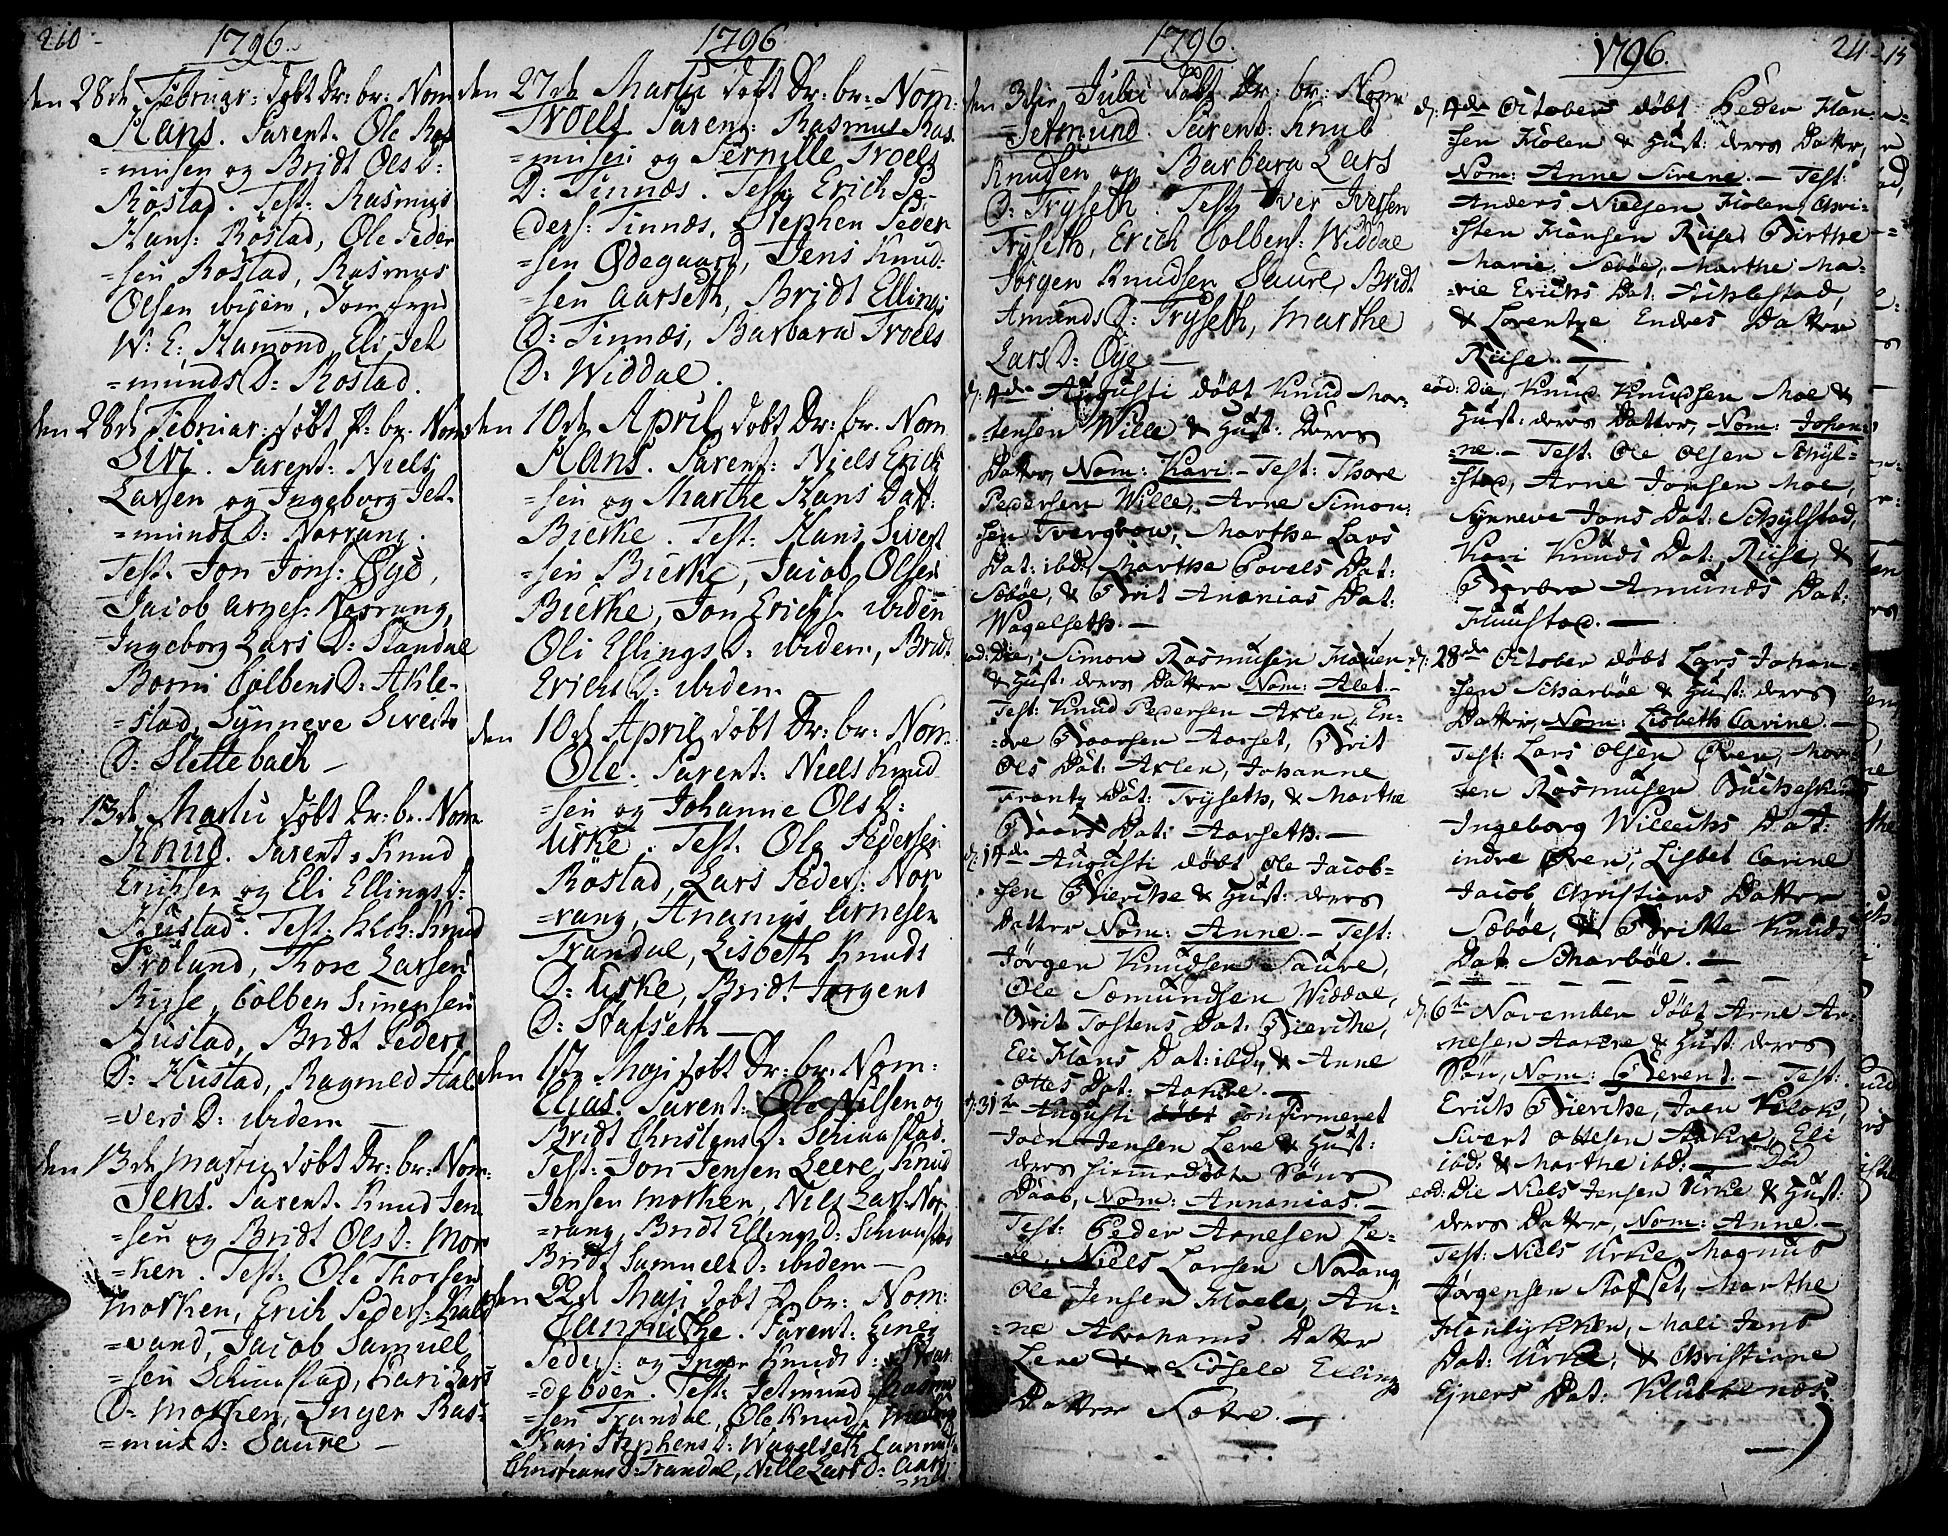 210
1796
den 28de Februar: döbt Dr: br: Nom
Hans. Parent. Ole Ras
=musen og Bridt Ols D:
Röstad. Test: Rasmus
Hans: Röstad, Ole Peder
=sen Röstad, Rasmus
Olsen ibidem, Jomfrue
W: E: Hamond, Eli Jet
=munds D: Röstad.
den 28de Februar: döbt Dr: br. Nom
Siri. Parent: Niels
Larsen og Ingeborg Jet-
=munds D: Norrung.
Test: Jon Jons: Øye,
Jacob Arnes: Norrung,
Ingeborg Lars D: Standal
Borni Colbens D: Akle-
=stad, Synneve Siverts
D: Slettebach -
13de Martii döbt Dr: br. Nom
Knud. Parent: Knud
Erichsen og Eli Ellings D:
Hustad. Test: Knud
Fröland, Thore Larsen
Riise, Colben Simensen
Hustad, Bridt Peders
D: Hustad, Ragnild Hal
=vers D: ibidem -
den 13de Martii döbt Dr: br: Nom:
Jens. Parent. Knud Jen
=sen og Bridt Ols D: Mor
=ken. Test: Ole Thorsen
Morken, Erich Peders:
=vand, Jacob Samuel
=sen Schiaastad, Kari Lars
D: Morken, Inger Ras-
=mus D: Saure -
1796
den 27de Martii döbt Dr: br: Nom:
Troels. Parent: Rasmus Ras
=musen og Pernille Troels
D: Tinnæs. Test: Erich Pe-
ders: Tinnæs, Stephen Peder
=sen Ødegaard, Jens Knud-
=sen Aarseth, Bridt Ellings
D: Tinnæs, Barbara Troels
D: Widdal.
den 10de April döbt Dr: br. Nom
Hans. Parent: Niels Erich
=sen og Marthe Hans Dat:
Bierke. Test: Hans Sivert
=sen Bierke, Jacob Olsen
Bierke, Jon Erichs: ibidem
Oli Ellings D: ibidem, Bridt
Erichs D: ibidem
den 10de April döbt Dr: br: Nom:
Ole. Parent: Niels Knud
=sen og Johanne Ols D:
Urke. Test: Ole Pedersen
Röstad, Lars Peders: Nor
=rang, Ananias Arnesen
Trandal, Lisbeth Knuds
D: Urke, Bridt Jörgens
D: Stafseth -
den Maji döbt Dr: br: Nom:
Elias. Parent: Ole Nilsen og
Bridt Christens D: Schiaastad.
Test: Jon Jensen Leere, Knud
Jensen Morken, Nils Lars: Nor
=rang, Bridt Ellings D: Schiaastad
Bridt Samuels D: ibidem -
den 22de Maji döbt Dr br: Nom:
. Parent: Einer
Peders: og Inger Knuds D:
. Test: Jetmund
=sen Trandal, Ole Knuds:
Kari Stephens D: Wagelseth
Christians D: Trandal, Nille Lars D:
1796
den 3die Julii döbt Dr: br: Nom
Jetmund. Parent: Knud
Knudsen og Barbara Lars
D: Tryseth. Test: Iver Iversen
Tryseth, Erich Colbens: Widdal
Jörgen Knudsen Saure, Bridt
Amunds D: Tryseth, Marthe
Lars D: Øye -
d: 4de Augusti döbt Knud Mor-
=tensen Wille & Hust: deres
Datter, Nom: Kari. - Test: Thore
Pedersen Wille, Arne Simon-
sen Tvergrow, Marthe Lars
Dat: ibd:, Marthe Povels Dat:
Sæböe, & Brit Ananias Dat:
Wagelseth. -
eod: Die, Simon Rasmusen Hauen
& Hust: deres Datter Nom: Alet. -
Test: Knud Pedersen Axlen, En-
=dre Baarsen Aarset, Brit
Ols Dat: Axlen, Johanne
Frantz Dat: Tryseth, & Marthe
Baars Dat: Aarseth. -
d: 14de Augusti döbt Ole Jacob-
sen Bierche & Hust: deres
Datter Nom: Anne. - Test:
Jörgen Knudsen Saure,
Ole Sæmundsen Widdal,
Brit Tostens Dat: Bierche,
Eli Hans Dat: ibd:, & Anne
Ottes Dat: Aakre. -
d: 31te Augusti döbt confirmeret
Joen Jensen Lere & Hust:
deres hiemmedöbte Söns
Daab, Nom: Annanias. -
Test: Peder Arnesen Le-
=re, Niels Larsen Norang
Ole Jensen Hoele, An-
=ne Abrahams Datter
Lere & Sissele Ellings
Datter Sætre. -
1796.
211
215
d: 4de October döbt Peder Han-
sen Molen & Hust: deres Datter,
Nom: Anne Sirene. - Test:
Anders Nielsen Molen, Chri-
sten Hansen Riise, Birthe
Marie Sæböe, Marthe Ma-
=rie Erichs Dat: Achlestad,
& Lorentze Endres Datter
Riise. -
eod: Die, Knud Knudsen Moe &
Hust: deres Datter, Nom: Johan-
ne. - Test: Ole Olsen Schyl-
stad, Arne Jonsen Moe,
Synneve Jons Dat: Schylstad,
Kari Knuds Dat: Riise, &
Barbra Amunds Dat:
Huustad. -
d: 28de October döbt Lars Johan-
sen Scharböe & Hust: deres
Datter, Nom: Lisbeth Carine. -
Test: Lars Olsen Øven,
sen Rasmusen
Ingeborg Willechs Dat:
indre Øven, Lisbet Carine
Jacob Christians Datter
Sæböe, & Britte Knuds
Dat. Scharböe. -
d: 6te November döbt Arne Ar-
nesen Aakre & Hust: deres
Sön, Nom: Berent. - Test:
Erich Bierche, Joen
Sivert Ottesen Aakre, Eli
ibd: & Marthe ibd: -
eod: Die Niels Jensen Urke & Hust:
deres Datter, Nom: Anne. -
Test: Niels Urke, Magnus
Jörgensen Stafset, Marthe
, Mali Jens
Dat: Urke, & Christiane
Ejners Dat: Klubbenes.